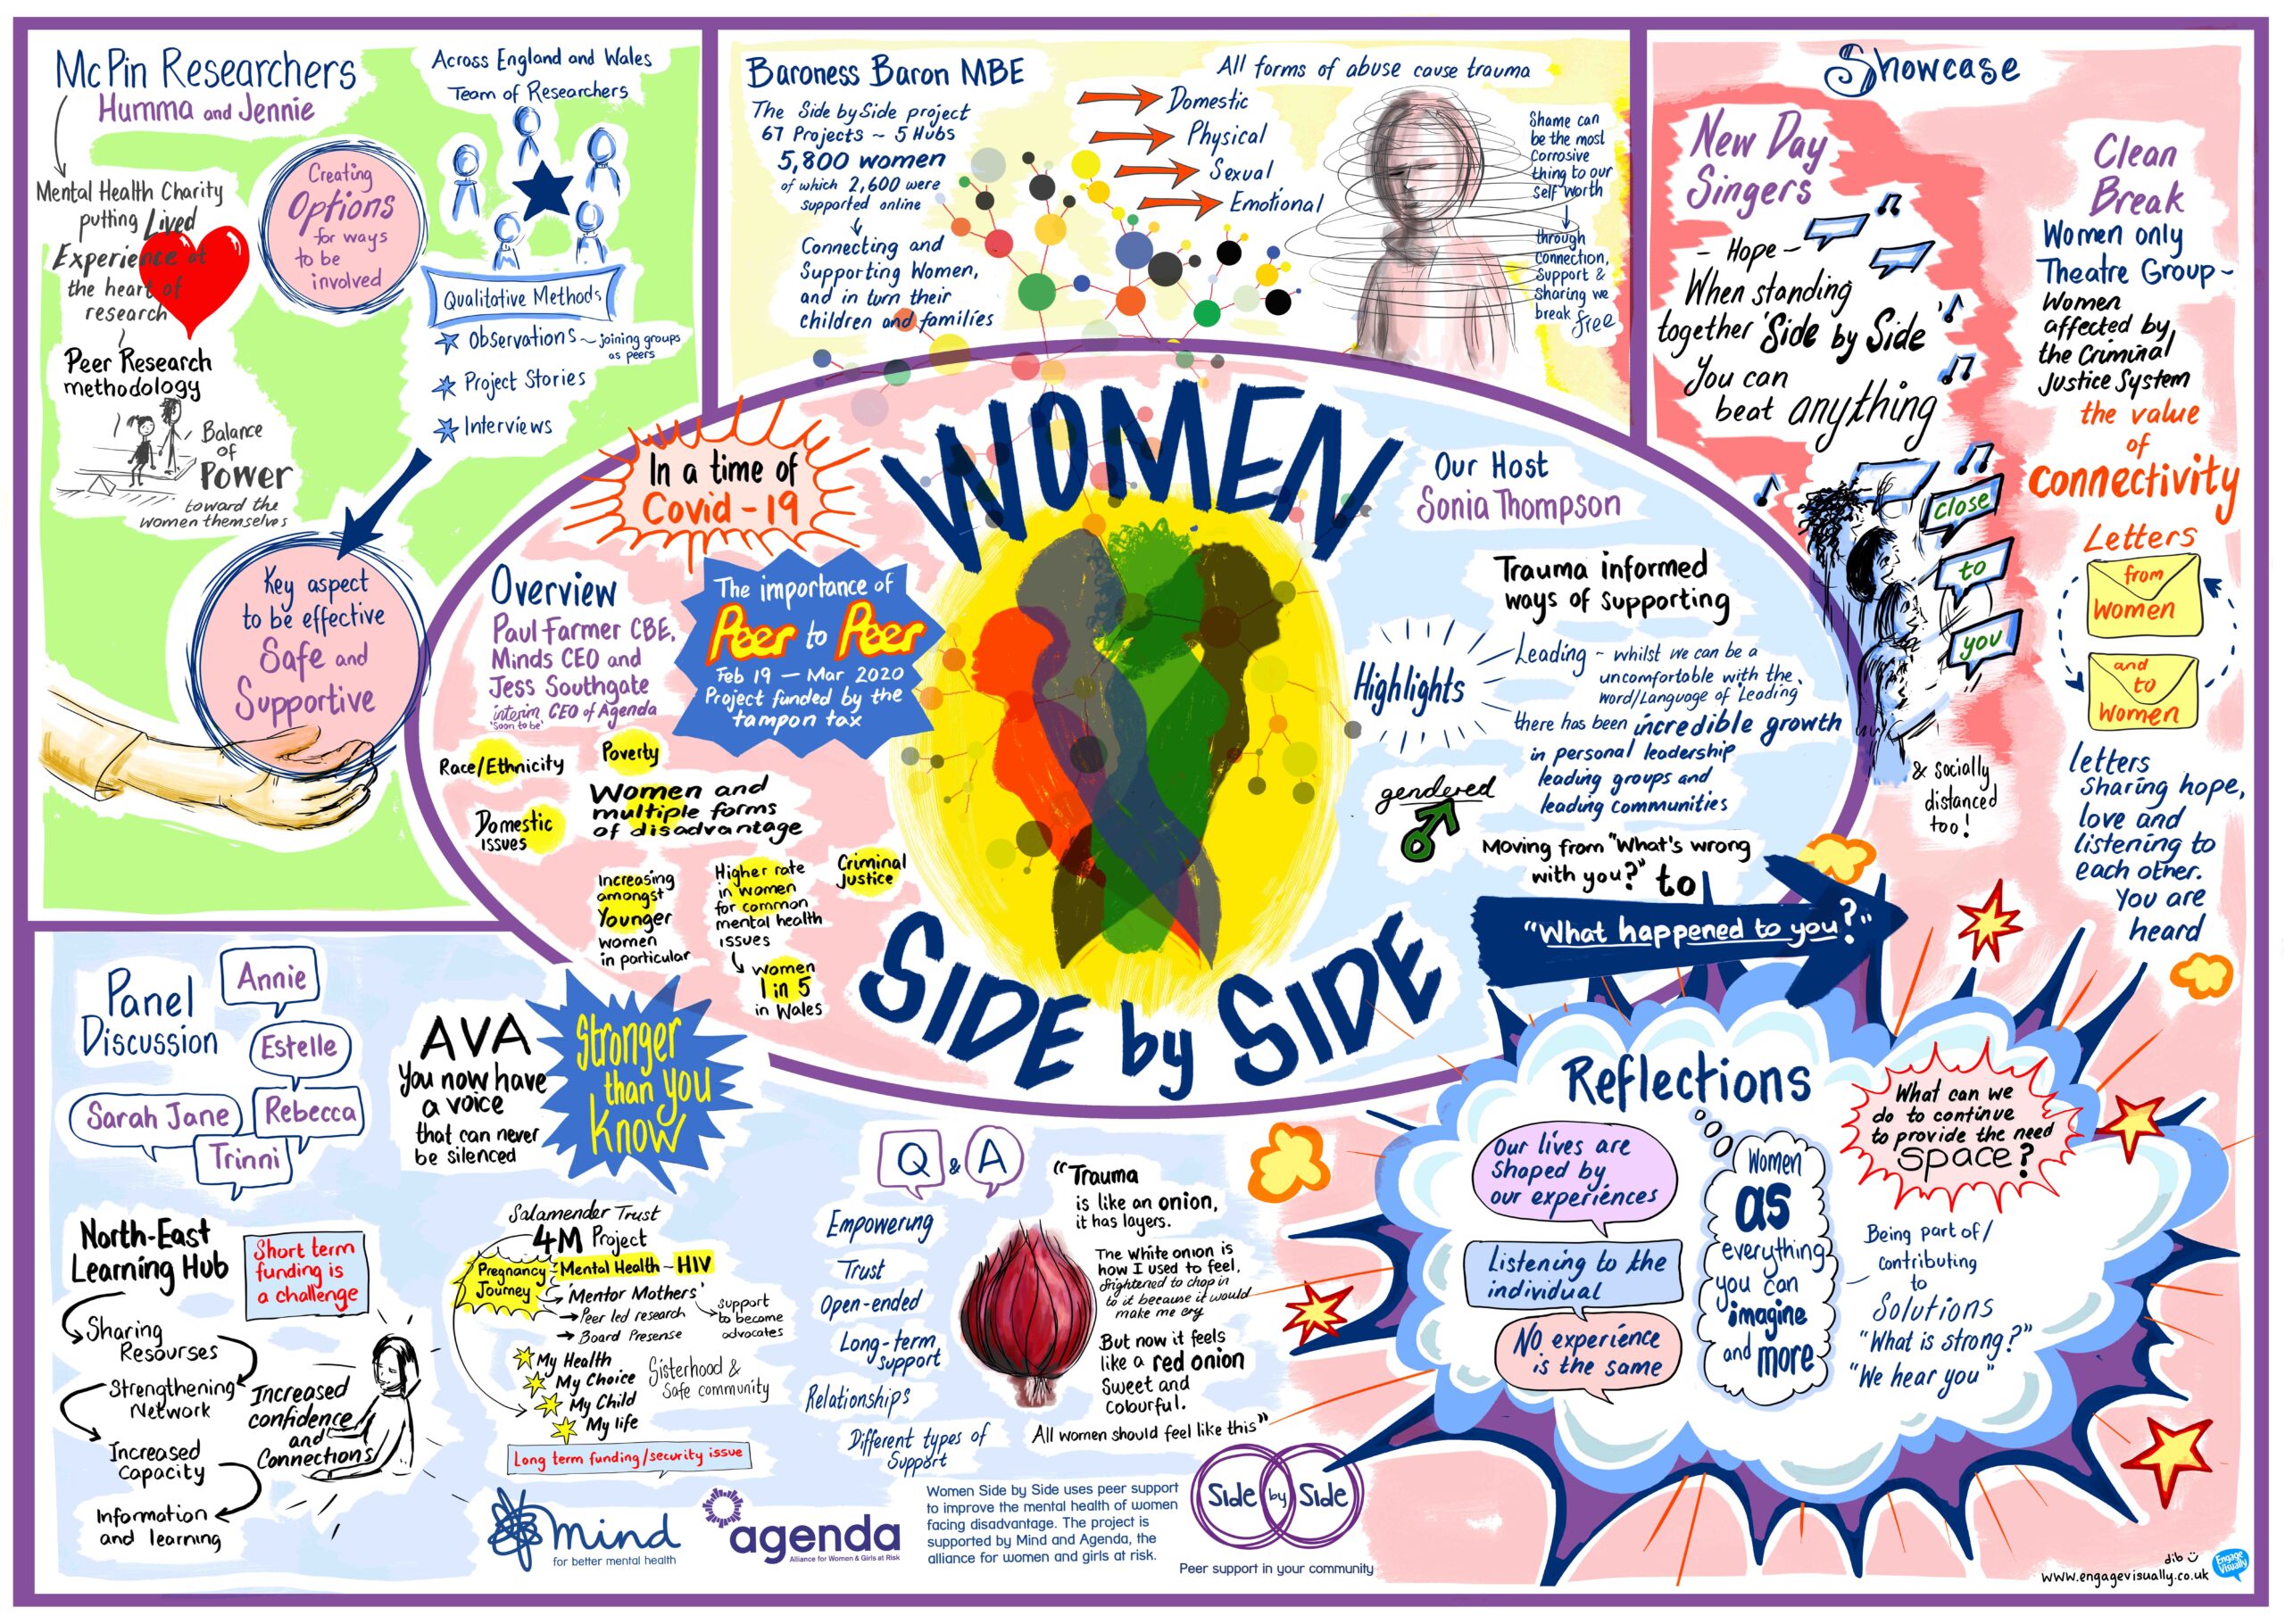 McPin Researchers
Humma and Jennie
Mental Health Charity
putting Lived
Experience at
the heart of
research
Peer Research
methodology
Balance
of
Power
toward the
women themselves
Creating
Options
for ways
to be
involved
Across England and Wales
Team of Researchers
Qualitative Methods
Observations ~ joining groups
as peers
Project Stories
Interviews
Key aspect
to be effective
Safe and
Supportive
Baroness Baron MBE
The Side by Side project
67 Projects ~ 5 Hubs
5,800 women
of which 2,600 were
supported online
Connecting and
Supporting Women,
and in turn their
children and families
All forms of abuse cause trauma
Domestic
Physical
Sexual
Emotional
Shame can
be the most
Corrosive
thing to our
self worth
through
Connection,
Support &
Sharing we
break free
Showcase
New Day
Singers
- Hope -
When standing
together 'Side by Side
You can
beat anything
close
to
you
& Socially
distanced
too!
Clean
Break
Women only
Theatre Group -
Women
affected by
the Criminal
Justice System
the value
of
Connectivity
Letters
from
Women
and
to
Women
letters
Sharing hope,
love and
listening to
each other.
You are
heard
WOMEN
SIDE by SIDE
In a time of
Covid-19
Overview
Paul Farmer CBE,
Minds CEO and
Jess Southgate
interim CEO of Agenda
'Soon to be'
The importance of
Peer to Peer
Feb 19 — Mar 2020
Project funded by the
tampon tax
Race/Ethnicity
Poverty
Domestic
issues
Women and
multiple forms
of disadvantage
Increasing
amongst
Younger
women
in particular
Higher rate
in women
for common
mental health
issues
women
1 in 5
in Wales
Criminal
Justice
Our Host
Sonia Thompson
Trauma informed
ways of supporting
Highlights
Leading - whilst we can be a
uncomfortable with the
word/Language of 'Leading
there has been incredible growth
in personal leadership
leading groups and
leading communities
gendered
Moving from "What's wrong
with you?" to
"What happened to you?"
Panel
Discussion
Annie
Estelle
Sarah Jane
Rebecca
Trinni
AVA
You now have
a voice
that can never
be silenced
Stronger
than you
Know
North-East
Learning Hub
Short term
funding is
a challenge
Sharing
Resourses
Strengthening
Network
Increased
Capacity
Information
and learning
Increased
confidence
and
Connections
Salamender Trust
4M Project
Pregnancy
Journey
Mental Health - HIV
'Mentor Mothers'
Peer led research
Board Presense
support
to become
advocates
My Health
My Choice
My Child
My life
Sisterhood &
Safe community
Long term funding/security issue
Q & A
Empowering
Trust
Open-ended
Long-term
support
Relationships
Different types of
Support
"Trauma
is like an onion,
it has layers.
The white onion is
how I used to feel,
frightened to chop in
to it because it would
make me cry
But now it feels
like a red onion
Sweet and
Colourful.
All women should feel like this"
Reflections
Our lives are
Shaped by
our experiences
Listening to the
individual
No experience
is the same
Women
as
everything
you can
imagine
and more
What can we
do to continue
to provide the need
space?
Being part of/
contributing
to
Solutions
"What is strong?"
"We hear you"
mind
for better mental health
agenda
Alliance for Women & Girls at Risk
Women Side by Side uses peer support
to improve the mental health of women
facing disadvantage. The project is
supported by Mind and Agenda, the
alliance for women and girls at risk.
Side by Side
Peer support in your community
dib
www.engagevisually.co.uk
Engage
Visually